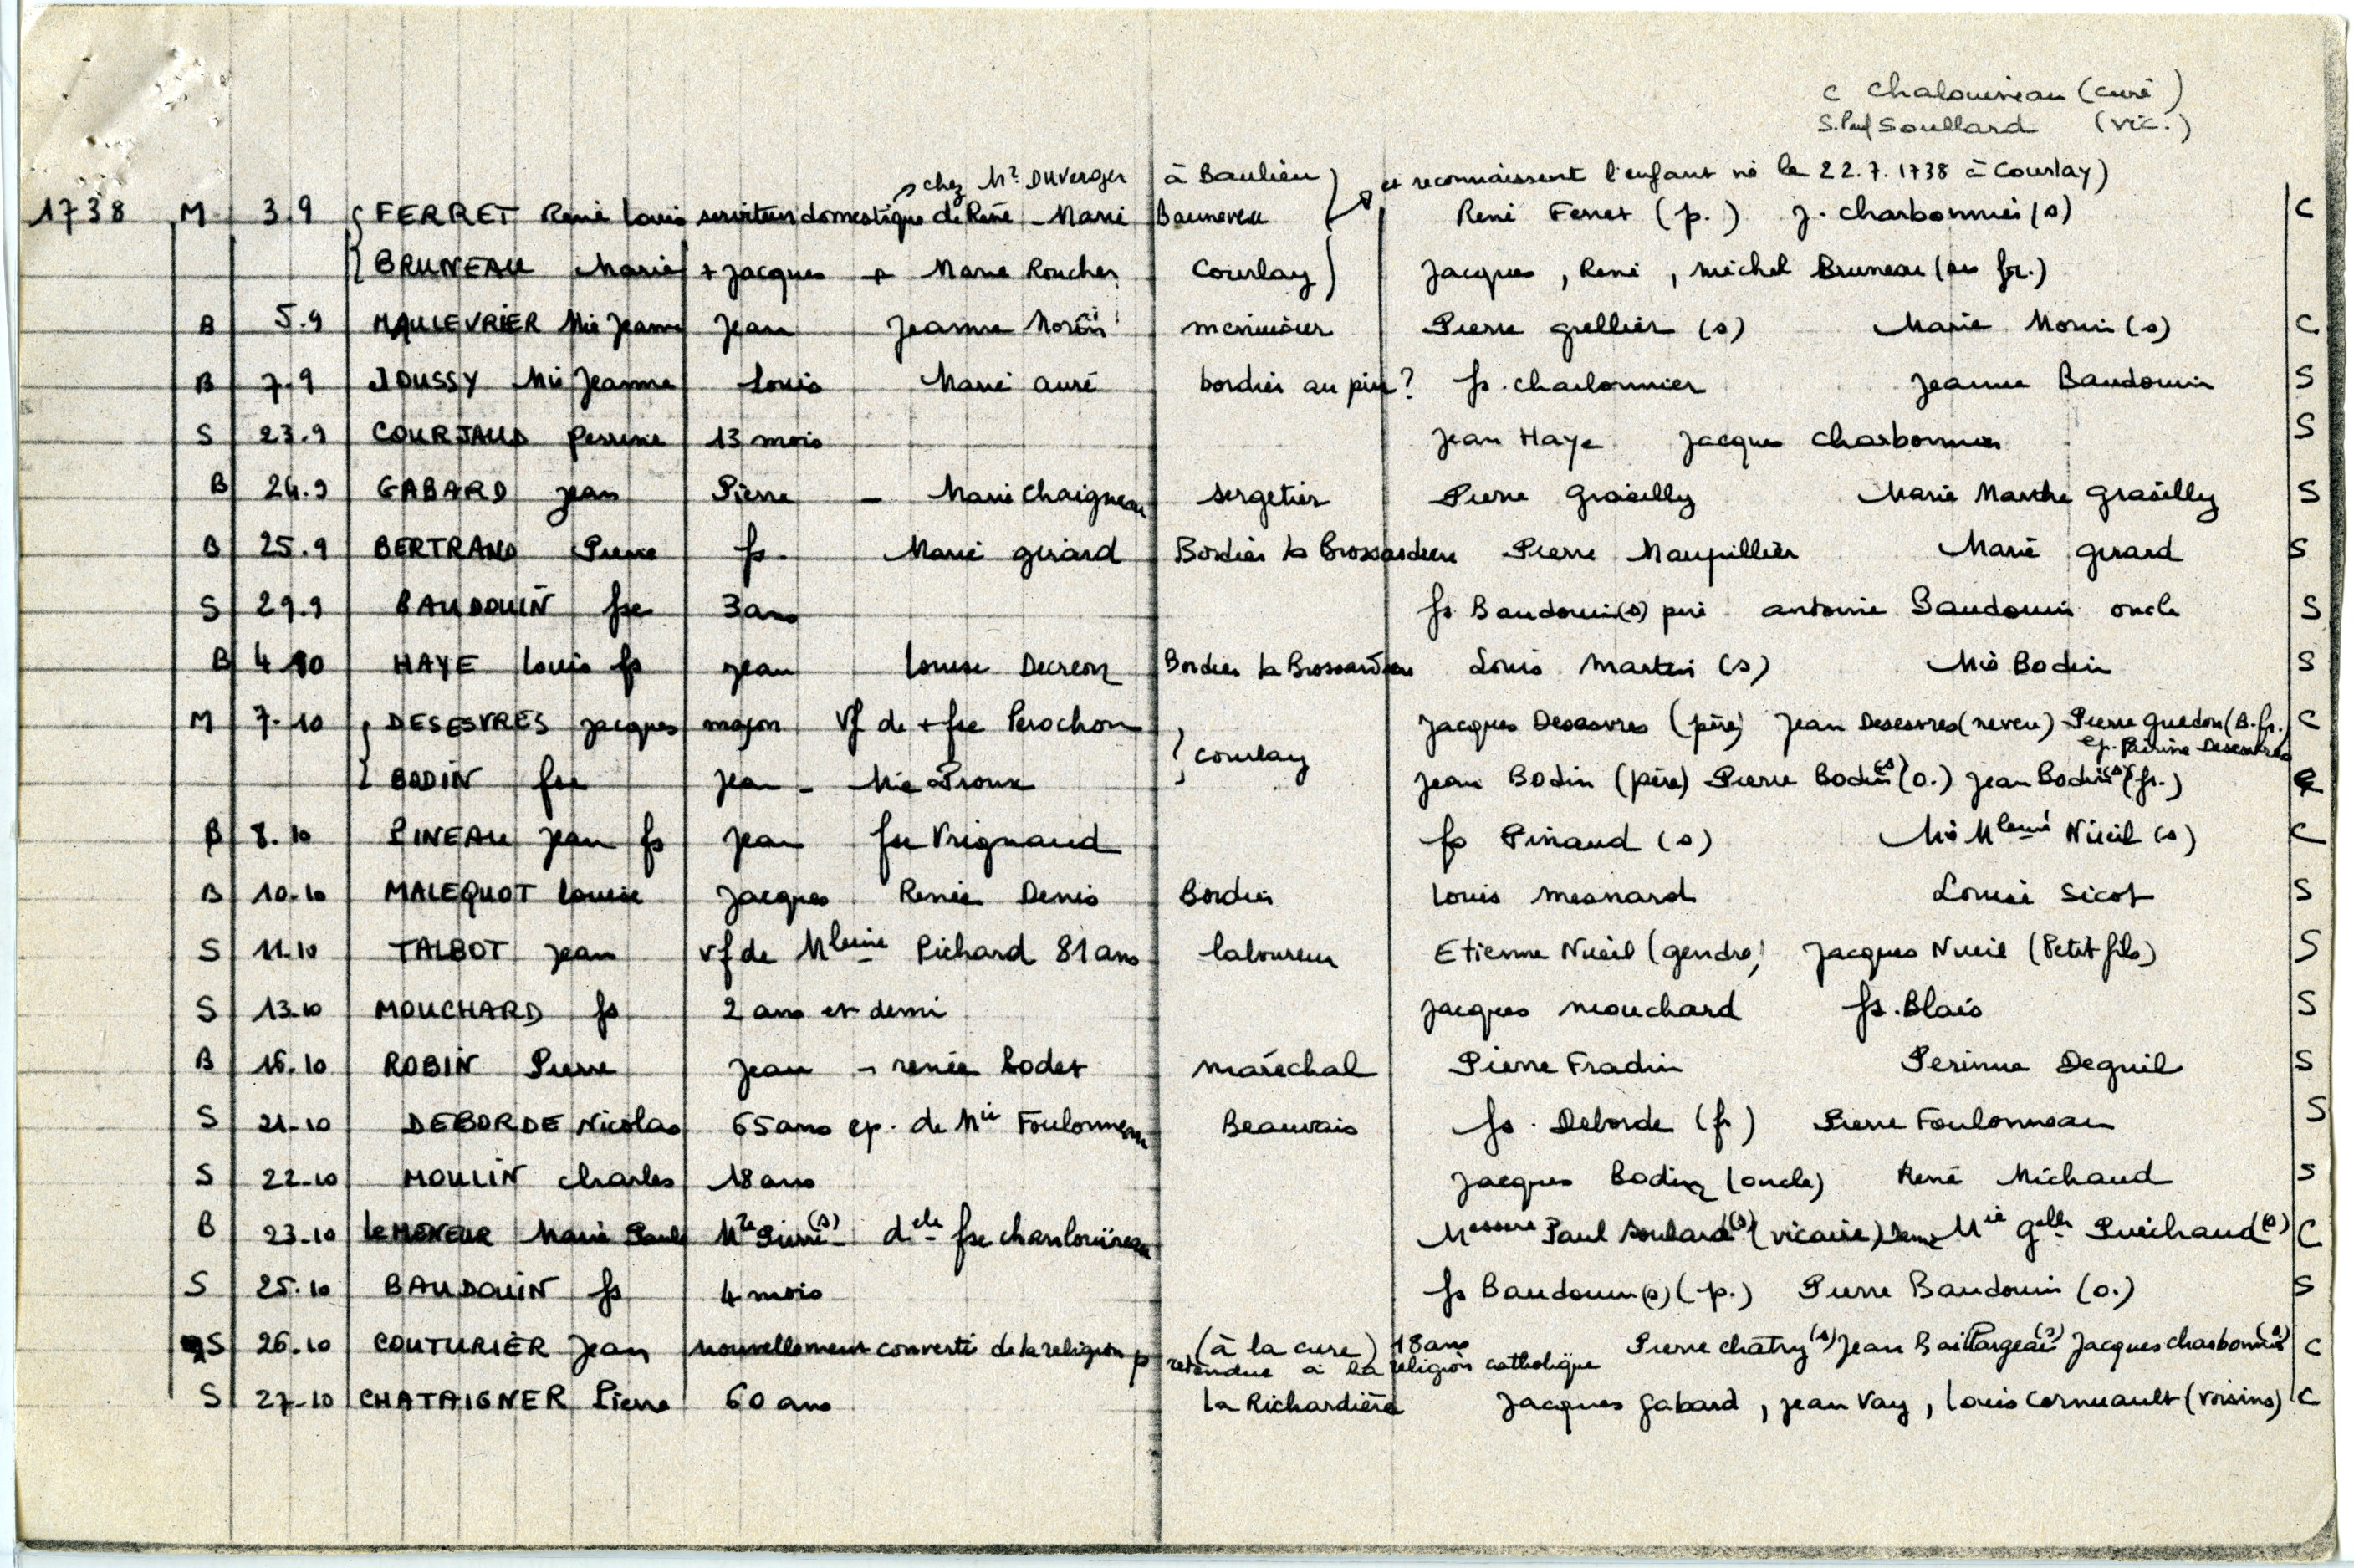 C Chalouineau (curé)
S. Paul Soullard (vic.)
chez Mr Duverger à Baulieu et reconnaissent l'enfant né le 22.7.1738 à Courlay)
1738 M 3.9 FERRET René Louis serviteur domestique de René - Marie Bauneveu René Ferret (p.) J. Charbonnier (s) C
BRUNEAU Marie + Jacques + Marie Roucher Courlay Jacques, René, Michel Bruneau (ses fr.)
B 5.9 MAULEVRIER Mie Jeanne Jean Jeanne Morin menuisier Pierre Grellier (s) Marie Morin (s) C
B 7.9 JOUSSY Mie Jeanne Louis Marie Auré bordier au pin? fs. Charbonnier Jeanne Baudouin S
S 23.9 COURJAUD Perrine 13 mois Jean Haye Jacques Charbonnier S
B 24.9 GABARD Jean Pierre - Marie Chaigneau sergetier Pierre Graseilly Marie Marthe Graseilly S
B 25.9 BERTRAND Pierre fs. Marie Girard Bordier la Brossardiere Pierre Maupillier Marie Girard S
S 29.9 BAUDOUIN fse 3 ans fs Baudouin (s) père Antoine Baudouin oncle S
B 4.10 HAYE Louis fs Jean Louise Decreon Bordier la Brossardiere Louis Martin (s) Mie Bodin S
M 7.10 DESESVRES Jacques maçon Vf de + fse Perochon Courlay Jacques Desesvres (père) Jean Desesvres (neveu) Pierre Guedon (B.fr.) C
ep. Perrine Desesvres
BODIN fse Jean - Mie Proux Jean Bodin (père) Pierre Bodin (s) (o.) Jean Bodin (s) (fr.)
B 8.10 PINEAU Jean fs Jean fse Vrignaud fs Pinaud (s) Mie Mleine Nueil (s) C
B 10.10 MALEQUOT Louise Jacques Renée Denis Bordier Louis Mesnard Louise Sicot S
S 11.10 TALBOT Jean vf de Mleine Pichard 81 ans laboureur Etienne Nueil (gendre) Jacques Nueil (Petit fils) S
S 13.10 MOUCHARD fs 2 ans et demi Jacques Mouchard fs. Blais S
B 16.10 ROBIN Pierre Jean - renée Bodet maréchal Pierre Fradin Perinne Deguil S
S 21.10 DEBORDE Nicolas 65 ans ep. de Mie Foulonneau Beauvais fs. Deborde (fr) Pierre Foulonneau S
S 22.10 MOULIN Charles 18 ans Jacques Bodin (oncle) René Michaud S
B 23.10 Le MENEUR Marie Paule Me Pierre (s) - delle fse Chanlouineau Messire Paul Soulard (s) (vicaire) Mie Puichaud (s) C
S 25.10 BAUDOUIN fs 4 mois fs Baudouin (s) (p.) Pierre Baudouin (o.) S
S 26.10 COUTURIER Jean nouvellement converti de la religion p (à la cure) 18 ans Pierre Chatry (s) Jean Baillargeau (s) Jacques Charbonnier (s) C
retendue à la religion catholique
S 27.10 CHATAIGNER Pierre 60 ans la Richardière Jacques Gabard, Jean Vay, Louis Cornuault (voisins) C